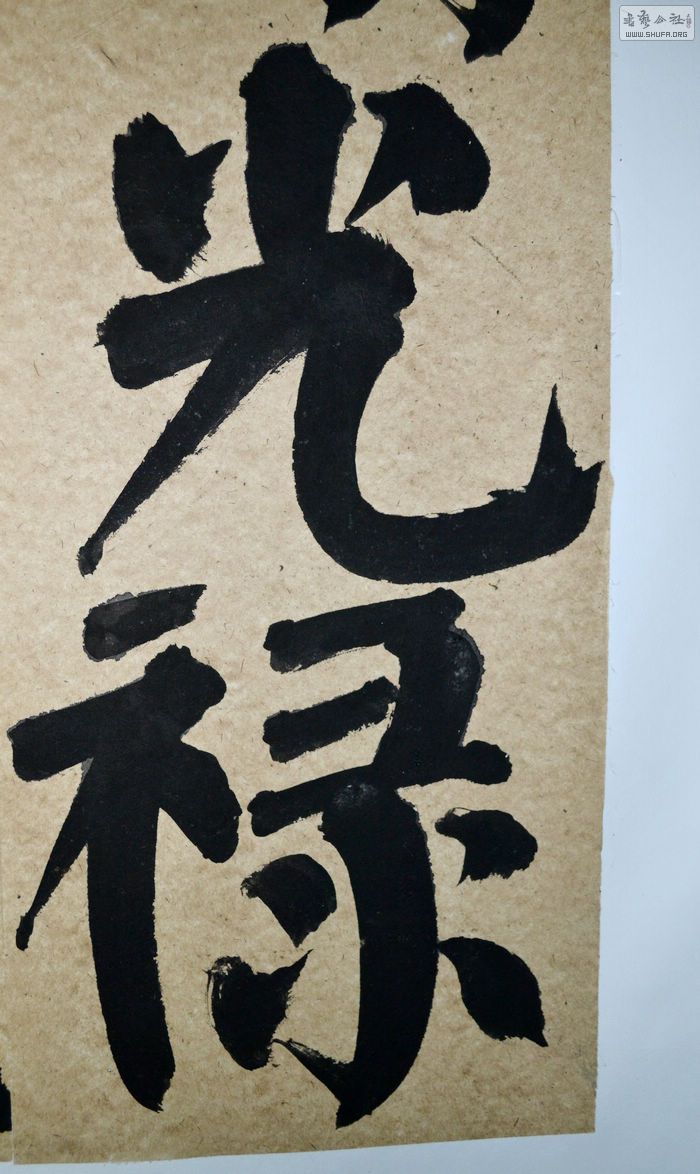 光禄
書藝公社
WWW.SHUFA.ORG